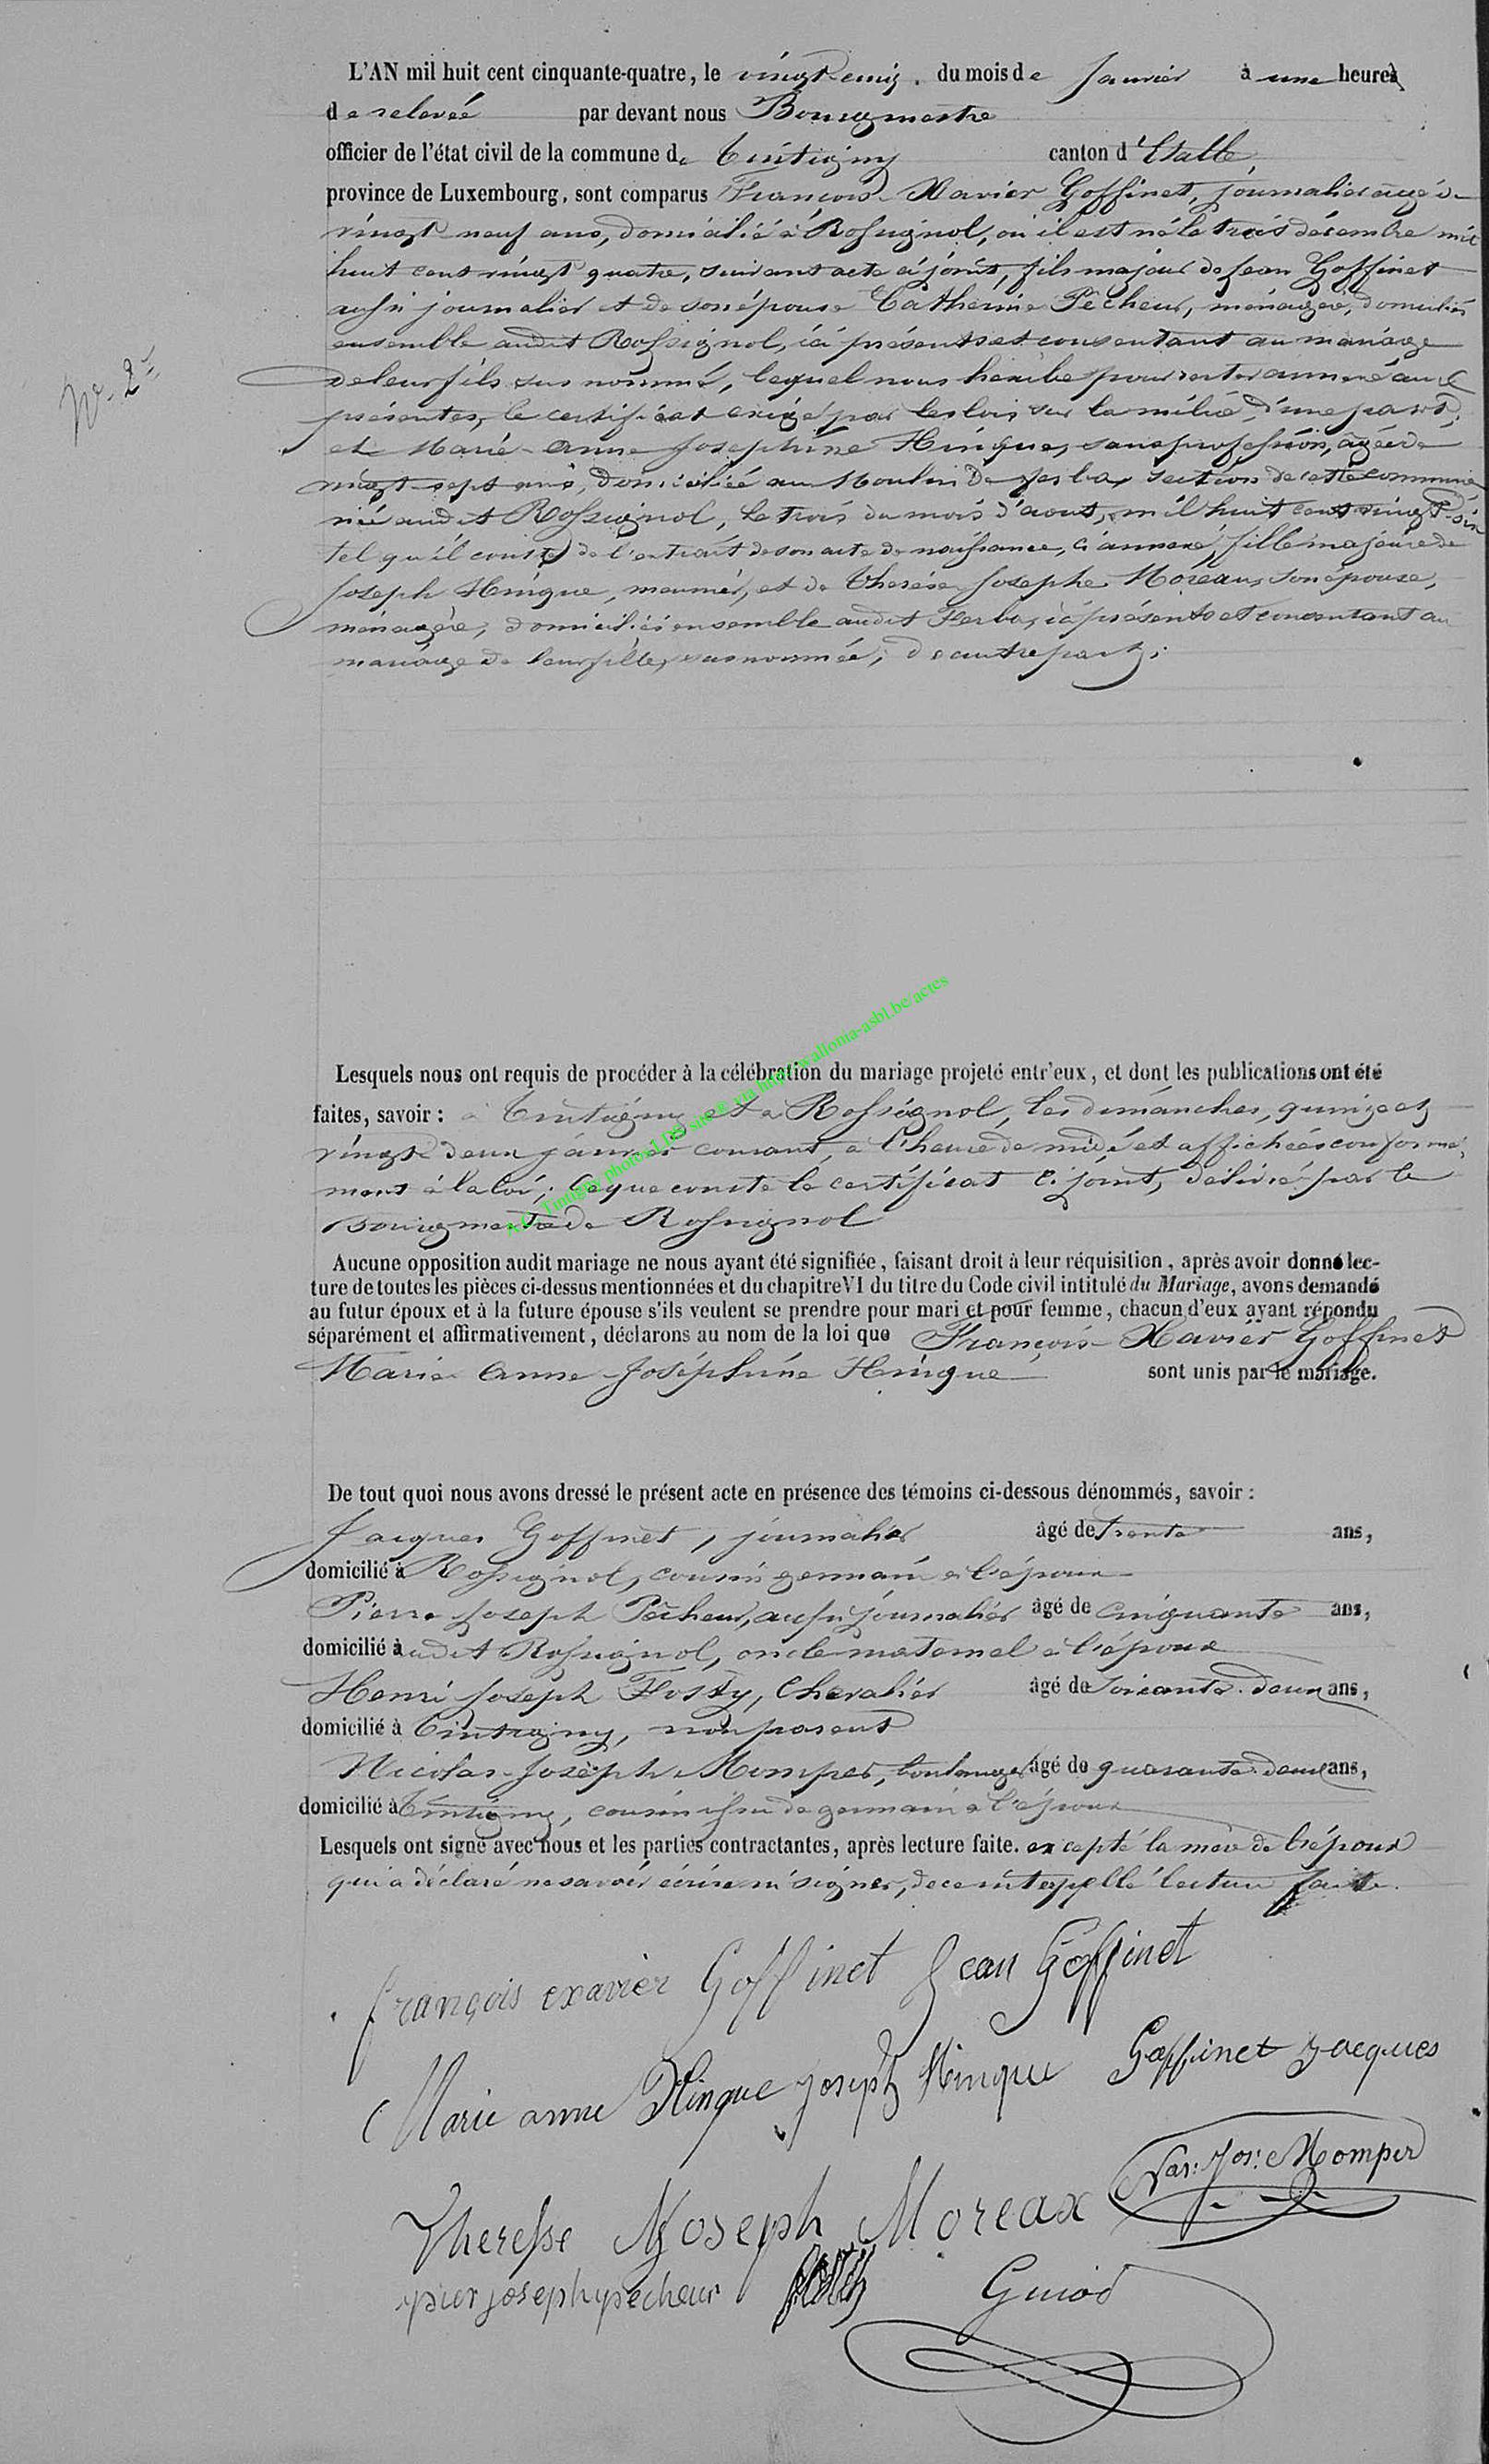 L'AN mil huit cent cinquante-quatre, le vingt cinq. du mois de Janvier à une heures
de relevée par devant nous Bourgmestre
officier de l'état civil de la commune de Tintigny canton d'Etalle,
province de Luxembourg, sont comparus François-Xavier Goffinet, journalier agé de
vingt-neuf ans, domicilié à Rossignol, où il est né le trois décembre mil
huit cent vingt quatre, suivant acte ci joint, fils majeur de Jean Goffinet
aussi journalier et de son épouse Catherine Pêcheur, ménagère, domiciliés
ensemble audit Rossignol, ici présents et consentant au mariage
N° 2
de leur fils sus nommé, lequel nous exhibe pour rester annexé aux
présentes, le certificat exigé par les lois sur la milice, d'une part;
et Marie-Anne Josephine Hinque, sans profession, agée de
vingt-sept ans, domiciliée au Moulin de Ferba, section de cette commune
née audit Rossignol, le trois du mois d'aout, mil huit cent vingt-six
tel qu'il conste de l'extrait de son acte de naissance, ci annexé, fille majeure de
Joseph Hinque, meunier, et de Therèse Josephe Moreau, son épouse,
ménagère, domiciliés ensemble audit Ferba, ici présents et consentant au
mariage de leur fille, susnommée, de autre part;
Lesquels nous ont requis de procéder à la célébration du mariage projeté entr'eux, et dont les publications ont été
faites, savoir: à Tintigny et à Rossignol, les dimanches, quinze et
vingt deux janvier courant, à l'heure de midi et affichées conformé-
ment à la loi; ce que conste le certificat ci joint, délivré par le
Bourgmestre de Rossignol
A.C. Tintigny photos LDS sur via http://wallonia-asbl.be/actes
Aucune opposition audit mariage ne nous ayant été signifiée, faisant droit à leur réquisition, après avoir donné lec-
ture de toutes les pièces ci-dessus mentionnées et du chapitre VI du titre du Code civil intitulé du Mariage, avons demandé
au futur époux et à la future épouse s'ils veulent se prendre pour mari et pour femme, chacun d'eux ayant répondu
séparément et affirmativement, déclarons au nom de la loi que François-Xavier Goffinet
Marie Anne Joséphine Hinque sont unis par le mariage.
De tout quoi nous avons dressé le présent acte en présence des témoins ci-dessous dénommés, savoir:
Jacques Goffinet, journalier âgé de trente ans,
domicilié à Rossignol, cousin germain à l'époux
Pierre Joseph Pêcheur, aussi journalier âgé de cinquante ans,
domicilié audit Rossignol, oncle maternel à l'époux
Henri Joseph Fosty, Chevalier âgé de soixante-deux ans,
domicilié à Tintigny, non parent
Nicolas-Joseph Momper, boulanger âgé de quarante-deux ans,
domicilié à Tintigny, cousin issu de germain à l'époux
Lesquels ont signé avec nous et les parties contractantes, après lecture faite. excepté la mère de l'époux
qui a déclaré ne savoir écrire ni signer, de ce interpellé lecture faite.
françois exavier Goffinet Jean Goffinet
Marie anne Hinque joseph Hinque Goffinet Jacques
Nas: Jos: Momper
Theresse Joseph Moreax
pier joseph pecheur Guiod